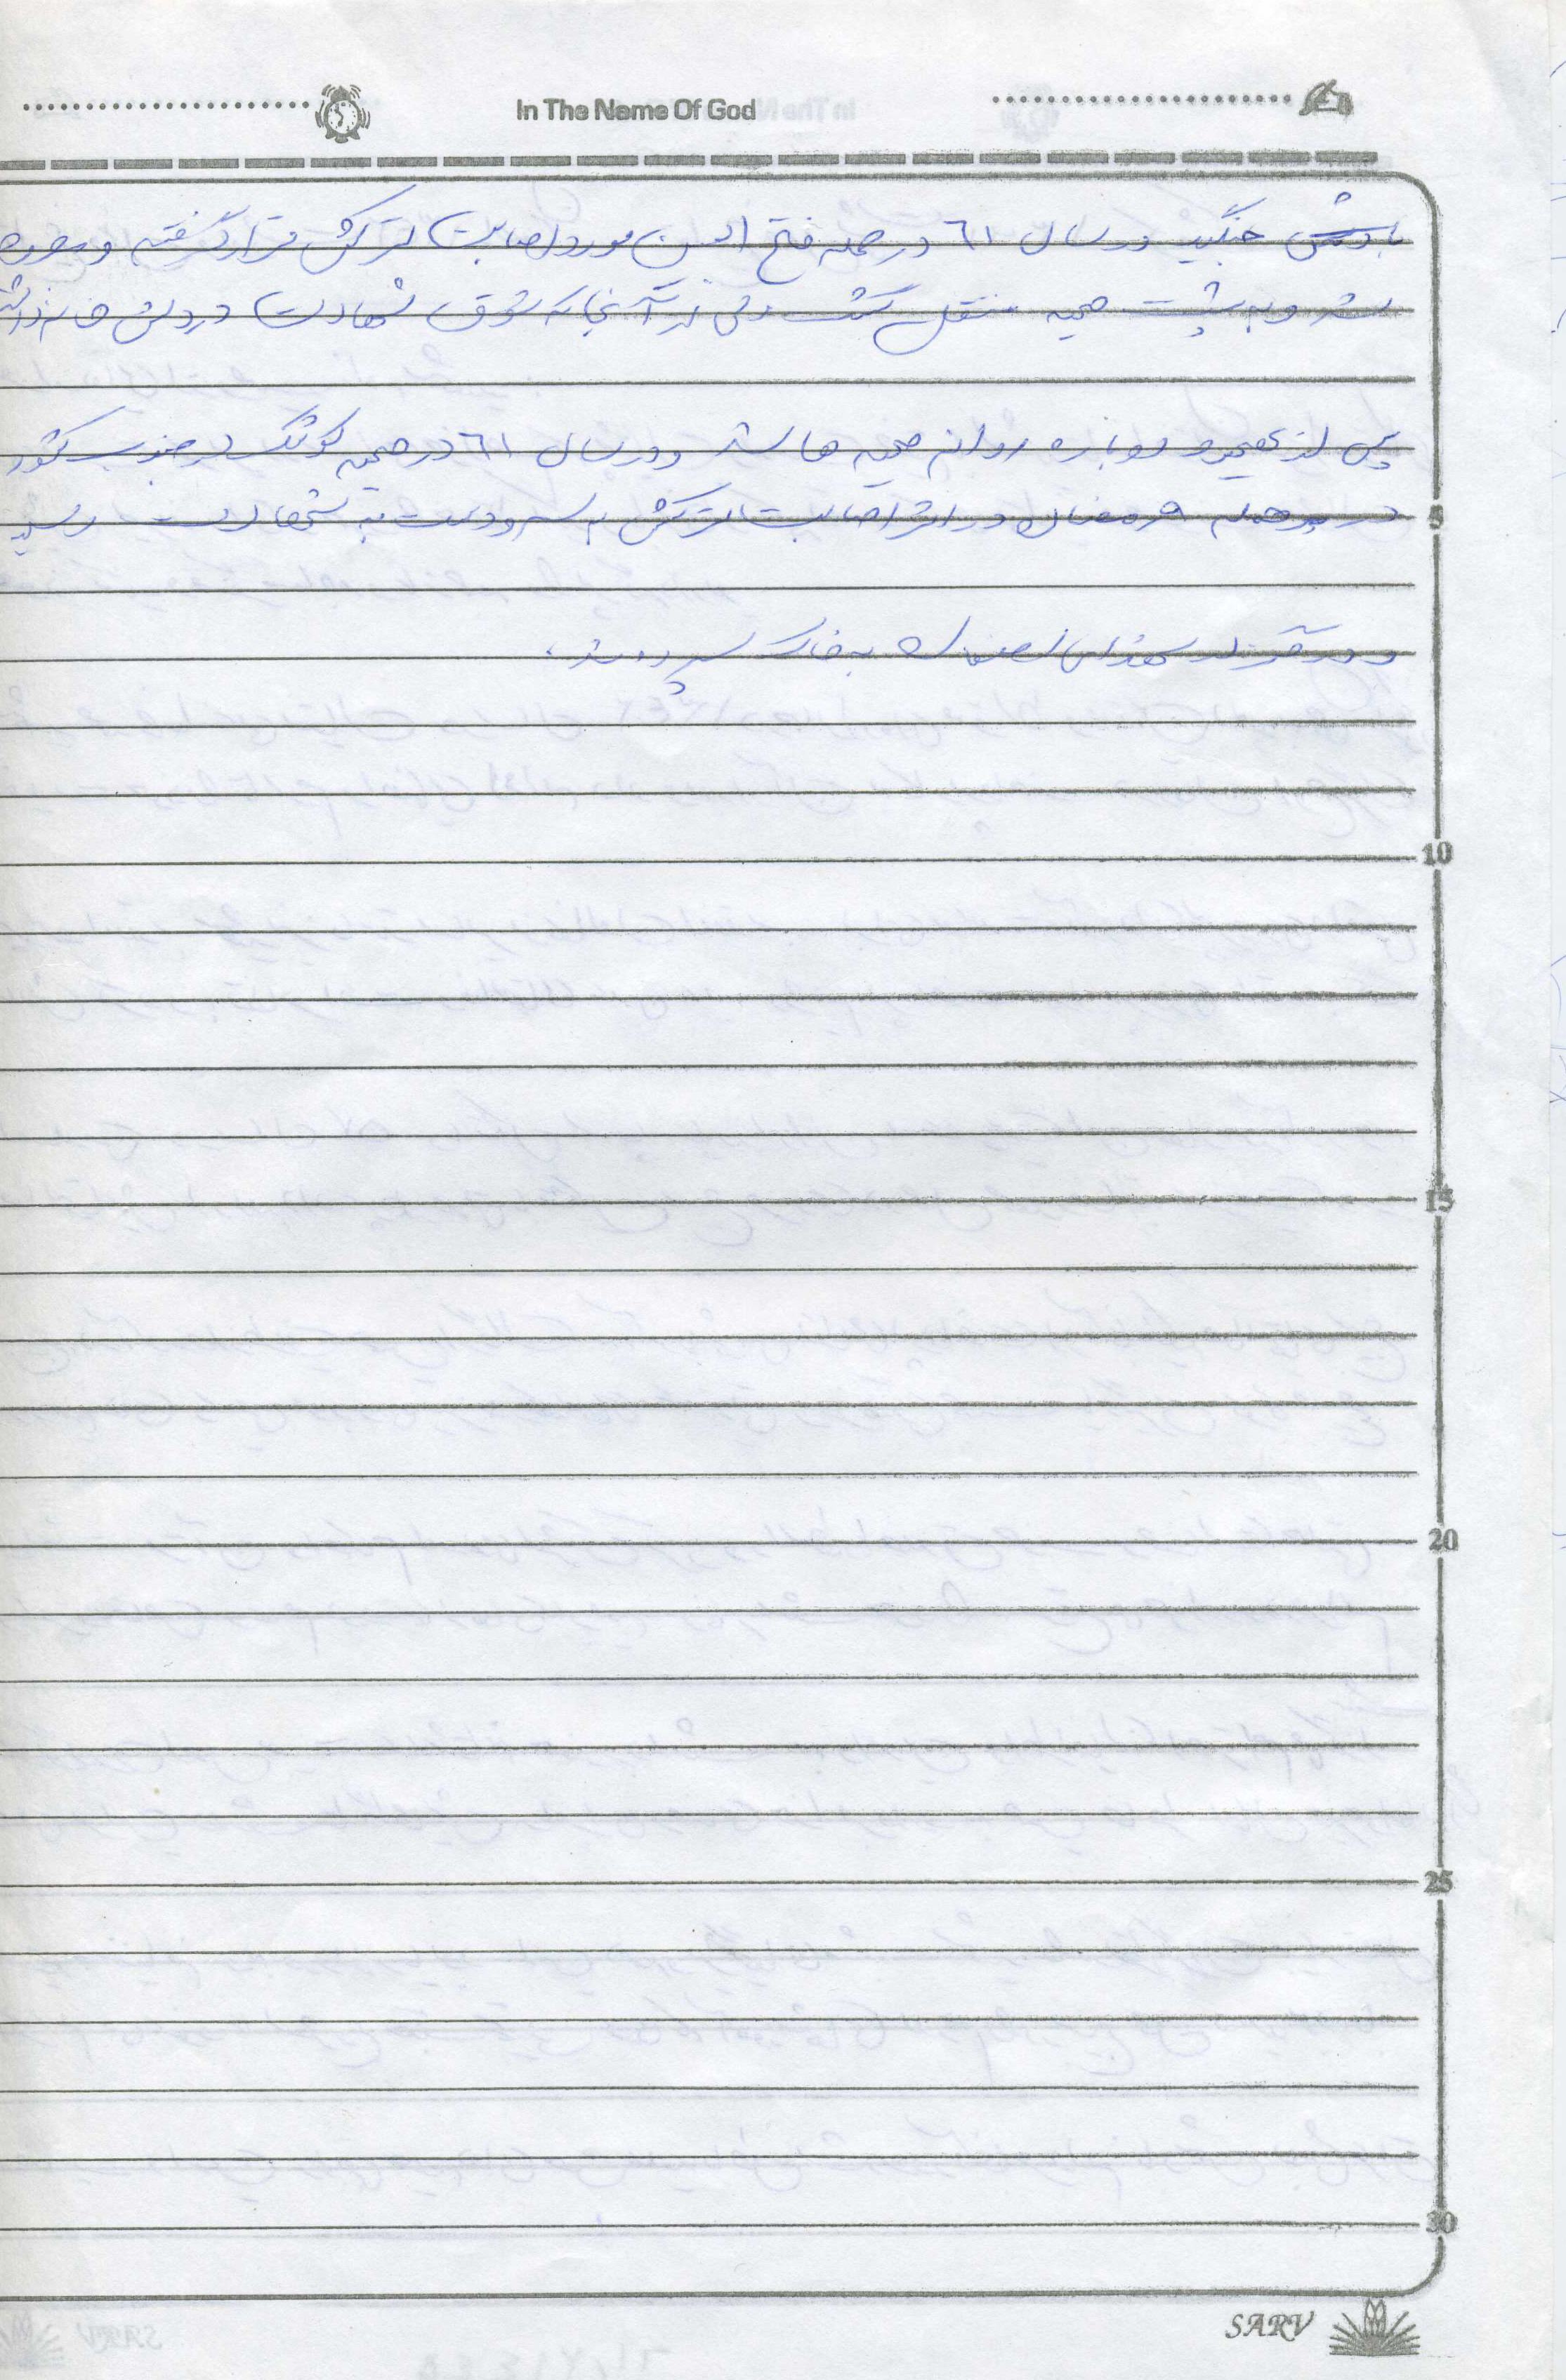 In The Name Of God
با دشمن جنگید در سال ٦١ در حمله فتح المبین مورد اصابت ترکش قرار گرفته و مجروح
شد و به پشت جبهه منتقل گشت ولی از آنجا که شوق شهادت در دلش خانه داشت
پس از بهبود دوباره روانه جبهه ها شد و در سال ٦١ در جبهه کوشک در جنوب کشور
در حمله رمضان در اثر اصابت ترکش به سر و دست به شهادت رسید
و در گلزار شهدای به خاک سپرده شد.
5
10
15
20
25
30
SARV